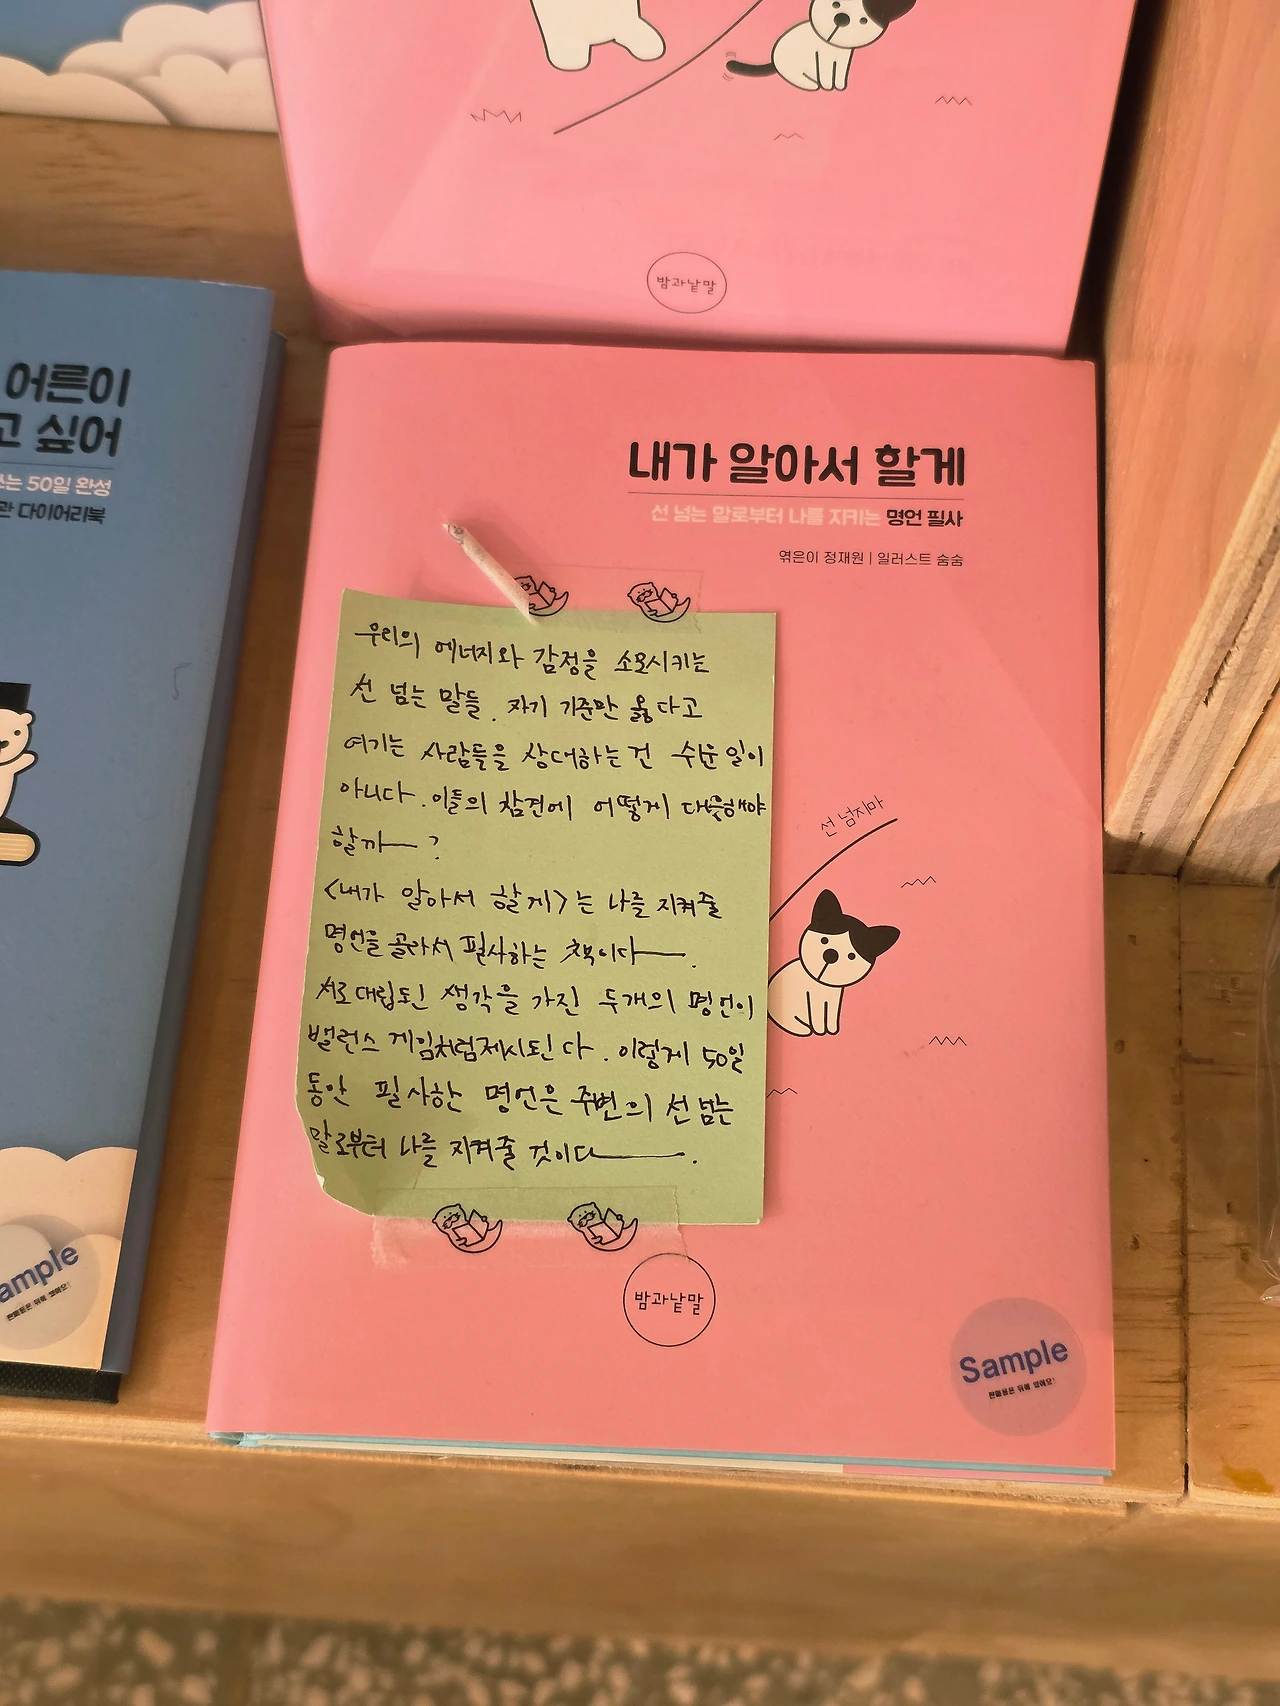 밤과낱말
어른이
고 싶어
쓰는 50일 완성
관 다이어리북
내가 알아서 할게
선 넘는 말로부터 나를 지키는 명언 필사
엮은이 정재원 | 일러스트 숨숨
우리의 에너지와 감정을 소모시키는
선 넘는 말들. 자기 기준만 옳다고
여기는 사람들을 상대하는 건 쉬운 일이
아니다. 이들의 참견에 어떻게 대응해야
할까— ?
<내가 알아서 할게>는 나를 지켜줄
명언을 골라서 필사하는 책이다—.
서로 대립된 생각을 가진 두개의 명언이
밸런스 게임처럼 제시된다. 이렇게 50일
동안 필사한 명언은 주변의 선 넘는
말로부터 나를 지켜줄 것이다—.
선 넘지마
밤과낱말
ample
판매용은 뒤에 있어요!
Sample
판매용은 뒤에 있어요!